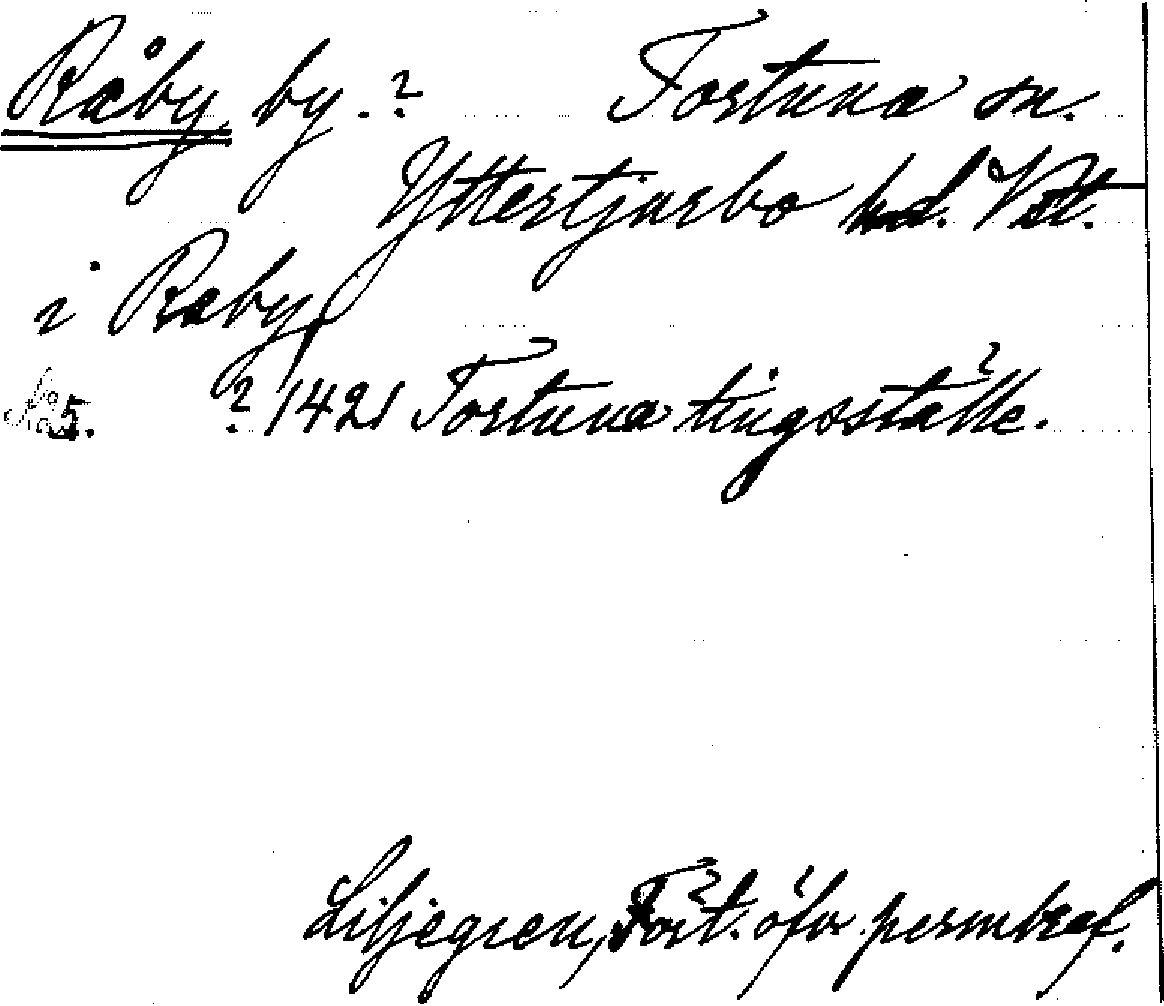 Råby by.? Fortuna sn.
Yttertjurbo hd. Vstl.
i Raby
25. ?/1421 Fortuna tingsställe.
Liljegren, Fört. öfv permbref.